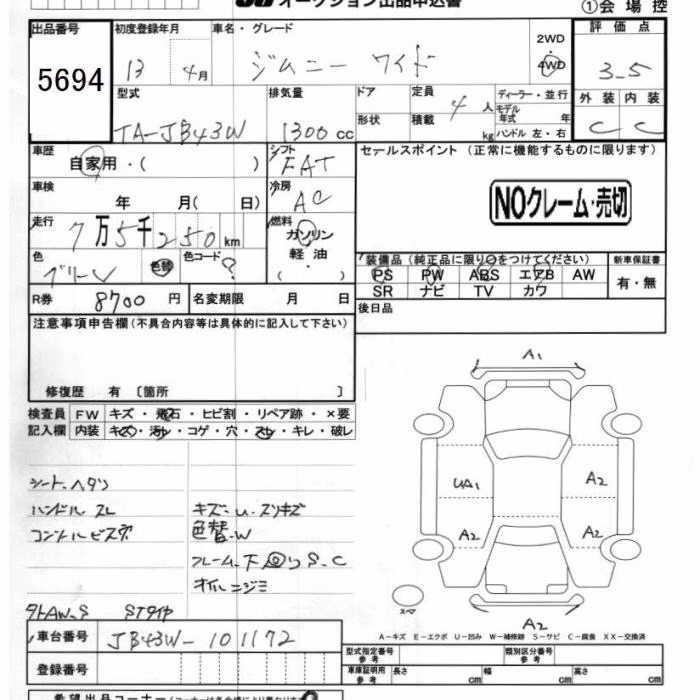 オークション出品申込書
①会場控
出品番号 5694
初度登録年月 13 4月
車名・グレード ジムニー ワイド
2WD
4WD
評価点 3.5
外装 C 内装 C
型式 TA-JB43W
排気量 1300 cc
ドア
形状
定員 4 人
積載 kg
ディーラー・並行
モデル
年式 年
ハンドル 左・右
車歴 自家用・( )
シフト FAT
セールスポイント (正常に機能するものに限ります)
車検 年 月( 日)
冷房 AC
NOクレーム・売切
走行 7万5千250km
燃料 ガソリン
軽油
・( )
色 グリーン 色替 色コード ?
装備品 (純正品に限り○をつけてください)
新車保証書
PS PW ABS エアB AW
SR ナビ TV カワ
有・無
R券 8700円 名変期限 月 日
後日品
注意事項申告欄(不具合内容等は具体的に記入して下さい)
修復歴 有 〔箇所 〕
検査員 FW キズ・飛石・ヒビ割・リペア跡・×要
記入欄 内装 キズ・汚れ・コゲ・穴・スレ・キレ・破レ
シートヘタリ
ハンドルスレ
キズ・U・スリキズ
コンソールビス穴
色替W
フレーム下回りS.C
オイルニジミ
STタイヤ
A1
UA1 A2
A2 A2
スペア
A2
A-キズ E-エクボ U-凹み W-補修跡 S-サビ C-腐食 XX-交換済
車台番号 JB43W-101172
登録番号
型式指定番号
参考
類別区分番号
参考
車庫証明用
参考
長さ cm 幅 cm 高さ cm
希望出品コーナー